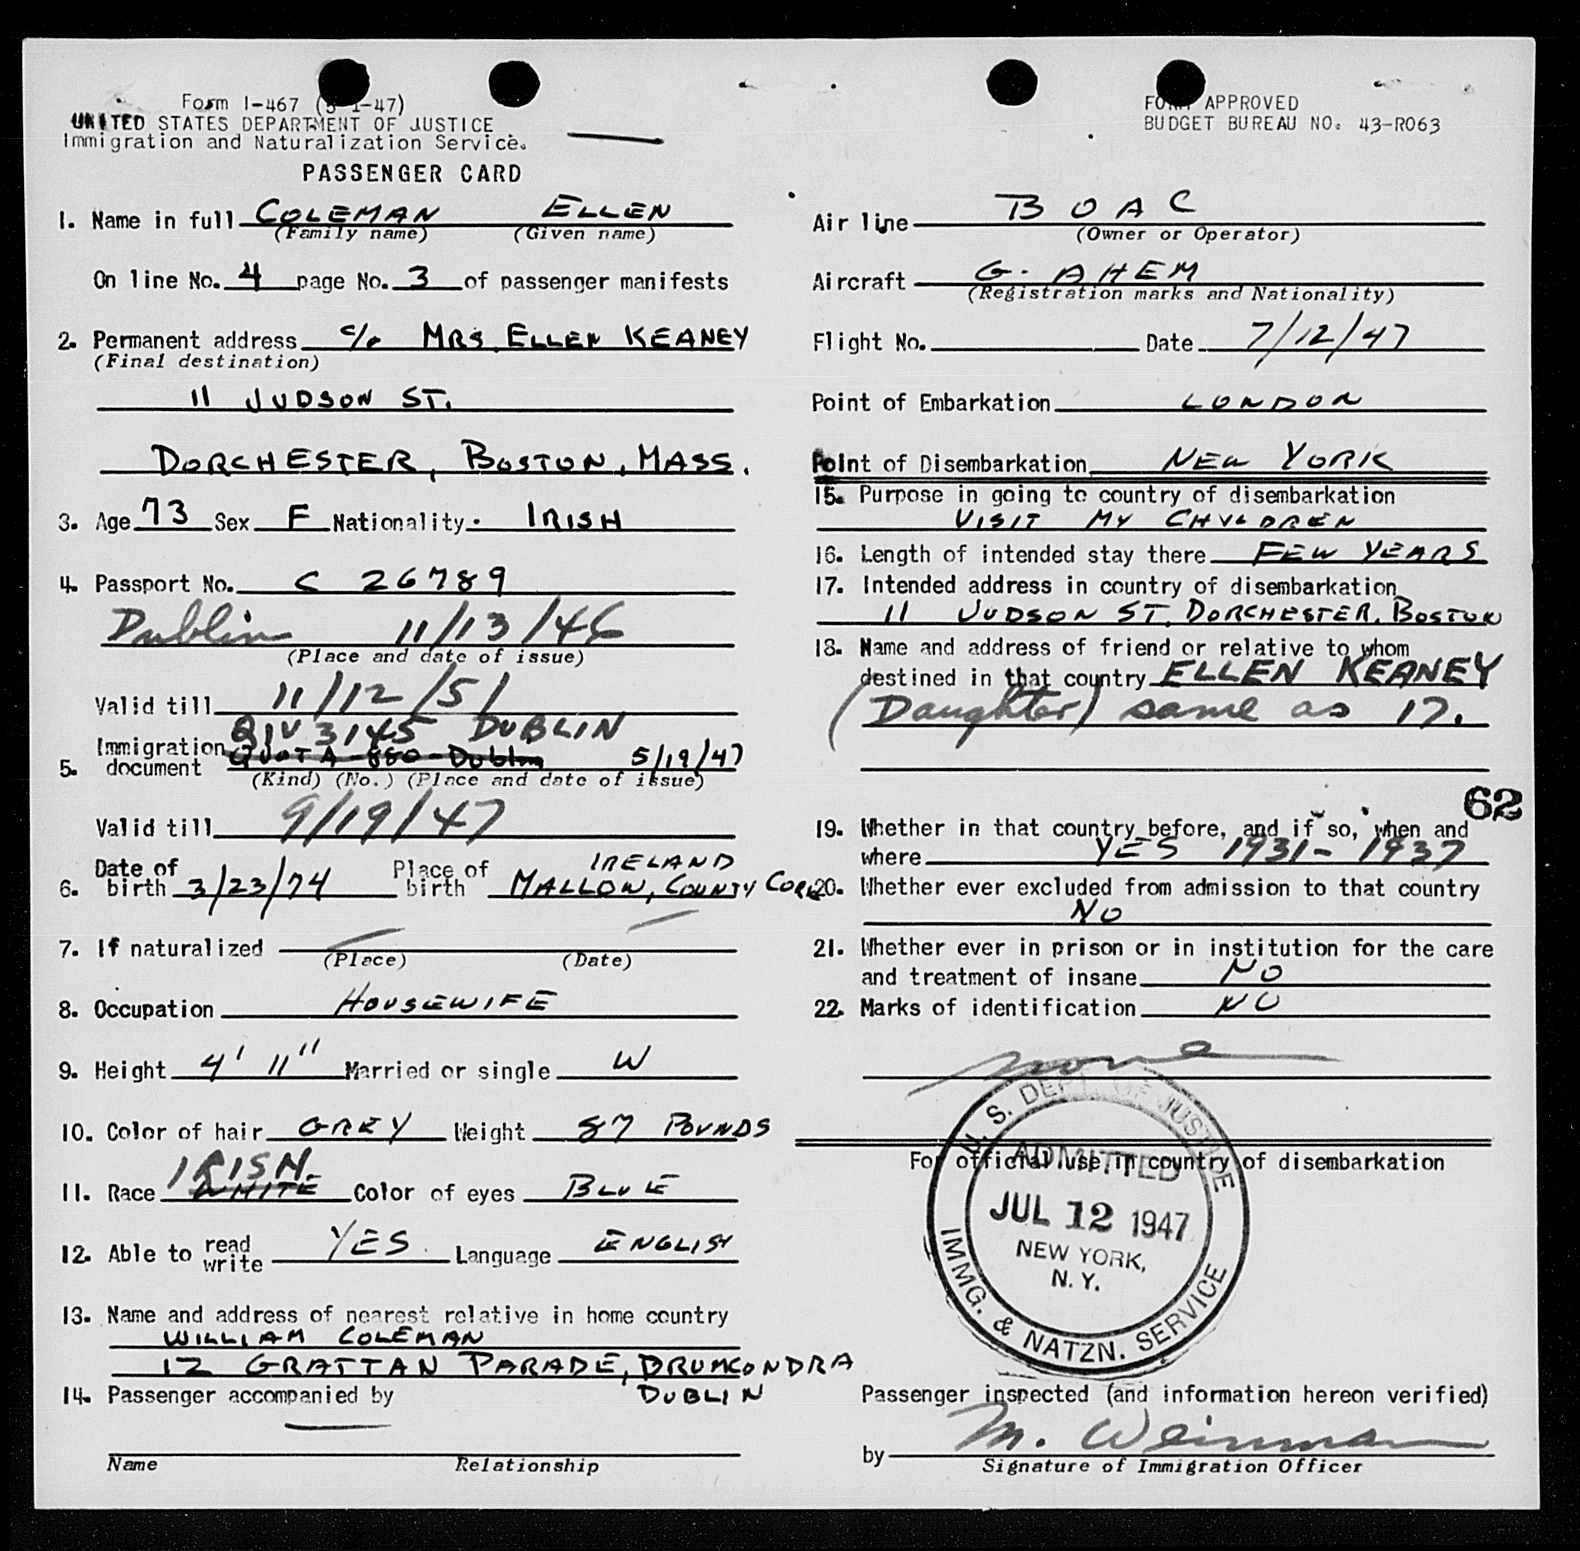 Form I-467 (5-1-47)
UNITED STATES DEPARTMENT OF JUSTICE
Immigration and Naturalization Service.
PASSENGER CARD
1. Name in full COLEMAN ELLEN
(Family name) (Given name)
On line No. 4 page No. 3 of passenger manifests
2. Permanent address c/o MRS. ELLEN KEANEY
(Final destination)
11 JUDSON ST.
DORCHESTER, BOSTON, MASS.
3. Age 73 Sex F Nationality IRISH
4. Passport No. C 26789
Dublin 11/13/46
(Place and date of issue)
Valid till 11/12/51
QIV 3145 DUBLIN
5. Immigration document QUOTA 880 Dublin 5/19/47
(Kind) (No.) (Place and date of issue)
Valid till 9/19/47
6. Date of birth 3/23/74 Place of birth MALLOW, COUNTY CORK IRELAND
7. If naturalized
(Place) (Date)
8. Occupation HOUSEWIFE
9. Height 4' 11" Married or single W
10. Color of hair GREY Weight 87 POUNDS
11. Race WHITE IRISH. Color of eyes BLUE
12. Able to read write YES. Language ENGLISH
13. Name and address of nearest relative in home country
WILLIAM COLEMAN
12 GRATTAN PARADE, DRUMCONDRA
DUBLIN
14. Passenger accompanied by
Name Relationship
FORM APPROVED
BUDGET BUREAU NO. 43-R063
Air line B O A C
(Owner or Operator)
Aircraft G. AHEM
(Registration marks and Nationality)
Flight No. Date 7/12/47
Point of Embarkation LONDON
Point of Disembarkation NEW YORK
15. Purpose in going to country of disembarkation
VISIT MY CHYLDREN
16. Length of intended stay there FEW YEARS
17. Intended address in country of disembarkation
11 JUDSON ST. DORCHESTER, BOSTON
18. Name and address of friend or relative to whom
destined in that country ELLEN KEANEY
(Daughter) same as 17.
62
19. Whether in that country before, and if so, when and
where YES 1931-1937
20. Whether ever excluded from admission to that country
NO
21. Whether ever in prison or in institution for the care
and treatment of insane NO
22. Marks of identification NO
none
For official use in country of disembarkation
U. S. DEPT. OF JUSTICE
ADMITTED
JUL 12 1947
NEW YORK,
N. Y.
IMMG. & NATZN. SERVICE
Passenger inspected (and information hereon verified)
by M. Weinman
Signature of Immigration Officer